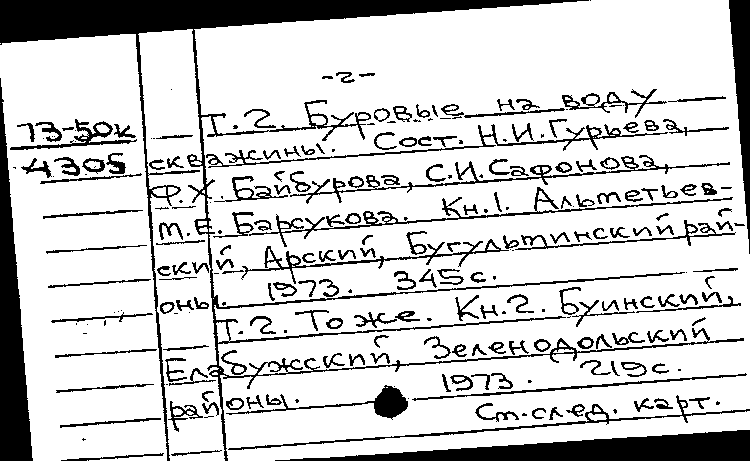 -2-
73-50к Т.2. Буровые на воду
4305 скважины. Сост. Н.И.Гурьева,
Ф.Х. Байбурова, С.И.Сафонова,
М.Е. Барсукова. Кн.1. Альметьев-
ский, Арский, Бугультинский рай-
оны. 1973. 345с.
Т.2. То же. Кн.2. Буинский,
Елабужсский, Зеленодольский
районы. 1973. 219с.
См.след. карт.